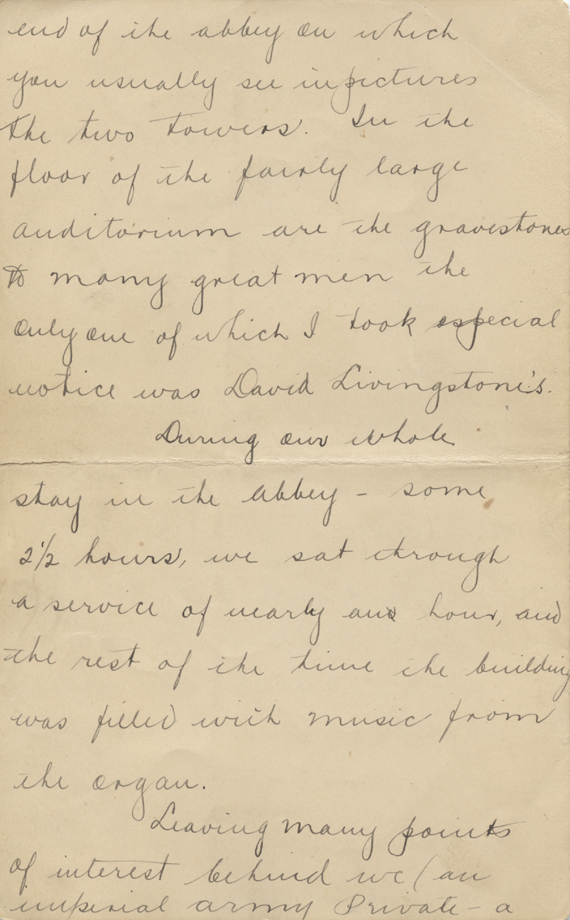 end of the abbey on which
you usually see in pictures
the two towers. In the
floor of the fairly large
auditorium are the gravestones
to many great men the
only one of which I took especial
notice was David Livingstone's.
During our whole
stay in the abbey - some
2 1/2 hours, we sat through
a service of nearly an hour, and
the rest of the time the building
was filled with music from
the organ.
Leaving many points
of interest behind we (an
imperial army Private - a